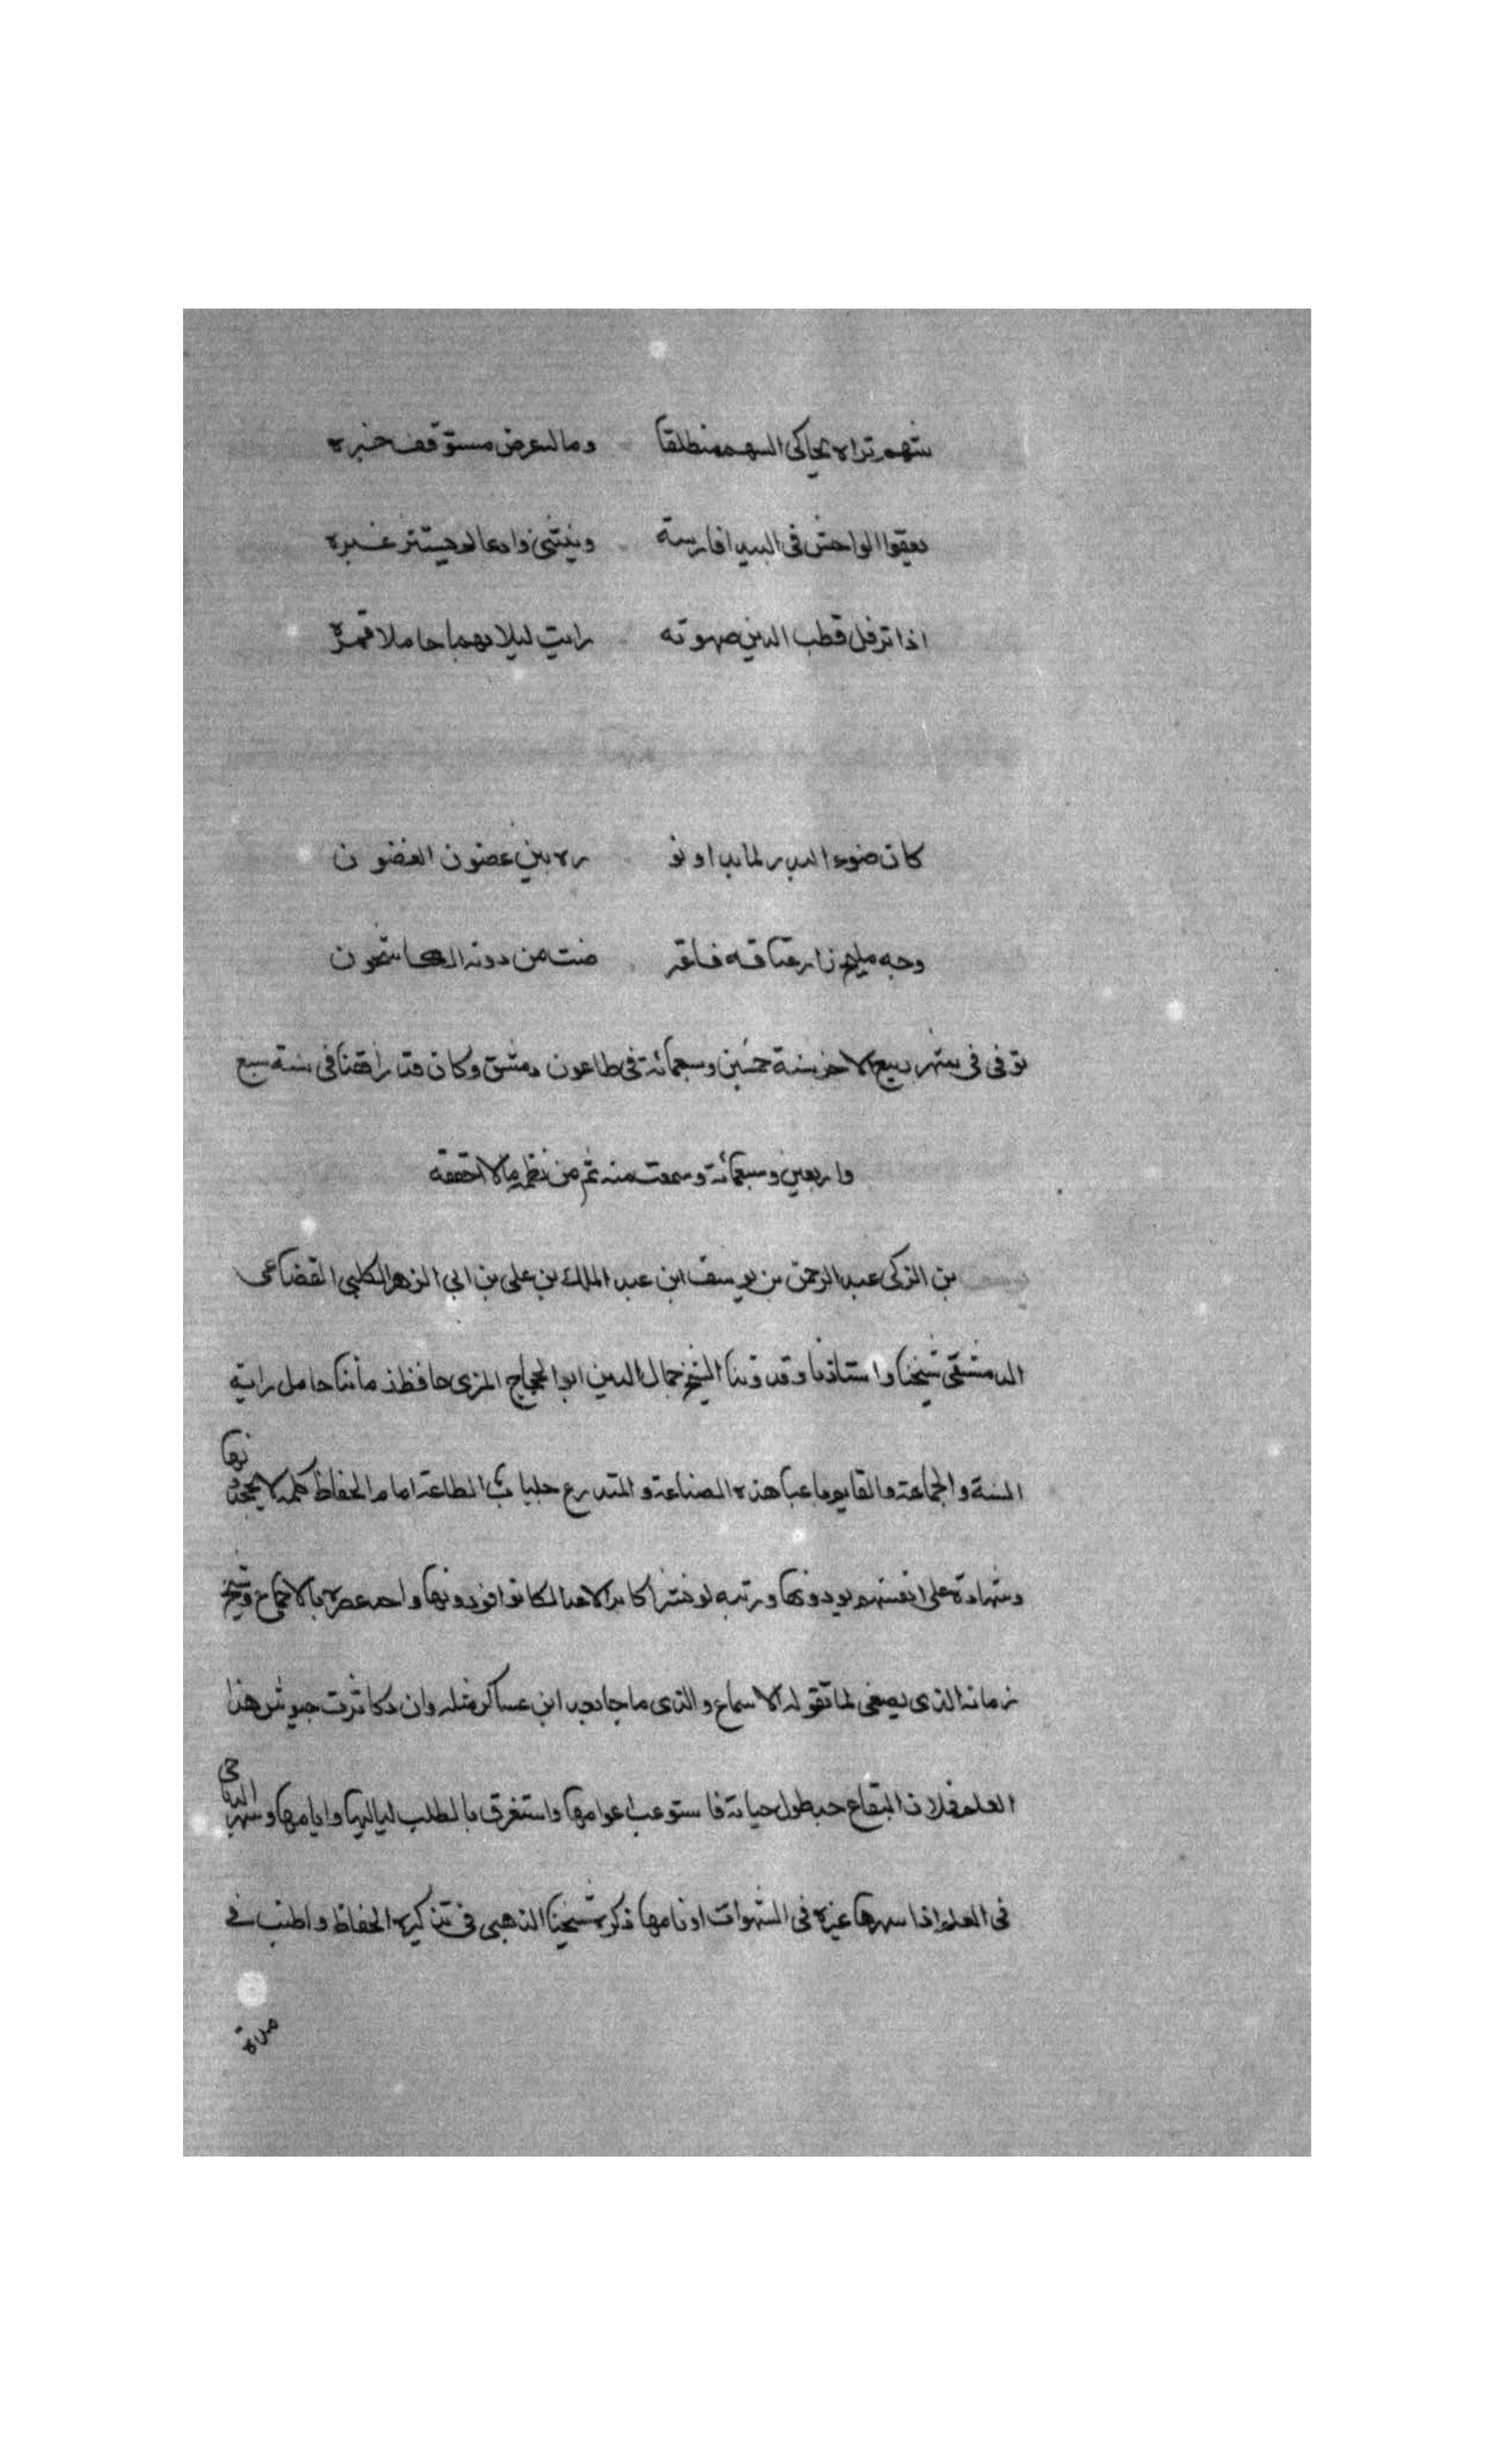 شهم تراه يحاكى السهم منطلقا وما لعرض مستوقف خبره
يعقوا الواحش فى البيدا فارسة وينثنى وادعا لم يستتر غبره
اذا ترفل قطب الدين صهوته رايت ليلا بهما حاملا قمره
كان ضوء البدر لما بدا ونو ره بين عضون الغضون
وجه مليح زار عشاقه فاعتر ضت من دونه الكاشحون
توفى فى شهر ربيع الاخر سنة خمسين وسبعمائة فى طاعون دمشق وكان قد رافقنا فى سنة سبع
واربعين وسبعمائة وسمعت منه ثم من نظمه مالا احققه
يوسف بن الزكى عبد الرحمن بن يوسف ابن عبد الملك بن على بن ابى الزهر الكلبى القضاعى
الدمشقى شيخنا واستاذنا وقدوتنا الشيخ جمال الدين ابو الحجاج المزى حافظ زماننا حامل راية
السنة والجماعة والقايم باعبا هذه الصناعة والمتدرع جلباب الطاعة امام الحفاظ كلمة لا يجحدونها
وشهادة على انفسهم يودونها ورتبه لو نشر اكابر الاعدا لكانوا يودونها واحد عصره بالاجماع وشيخ
زمانه الذى يصغى لما تقوله الاسماع والذى ما جا بعد ابن عساكر مثله وان تكاثرت جيوش هذا
العلم فملات البقاع جد طول حياته فاستوعب اعوامها واستغرق بالطلب لياليها وايامها وسهر الدياجى
فى العلم اذا سهرها غيره فى الشهوات او نامها ذكره شيخنا الذهبى فى تذكرة الحفاظ واطنب فى
مدة